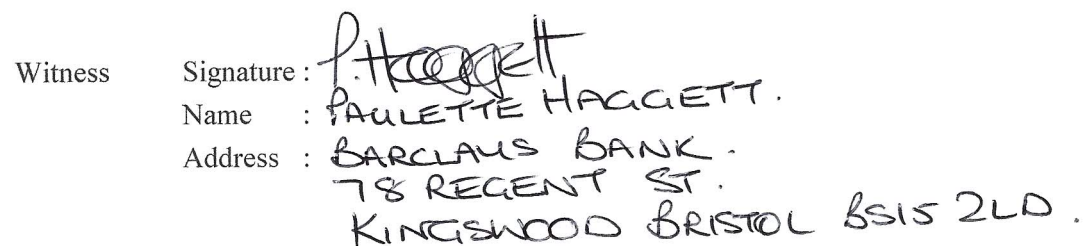 Witness Signature : P. Haggett
Name : PAULETTE HAGGETT.
Address : BARCLAYS BANK.
78 REGENT ST.
KINGSWOOD BRISTOL BS15 2LD.